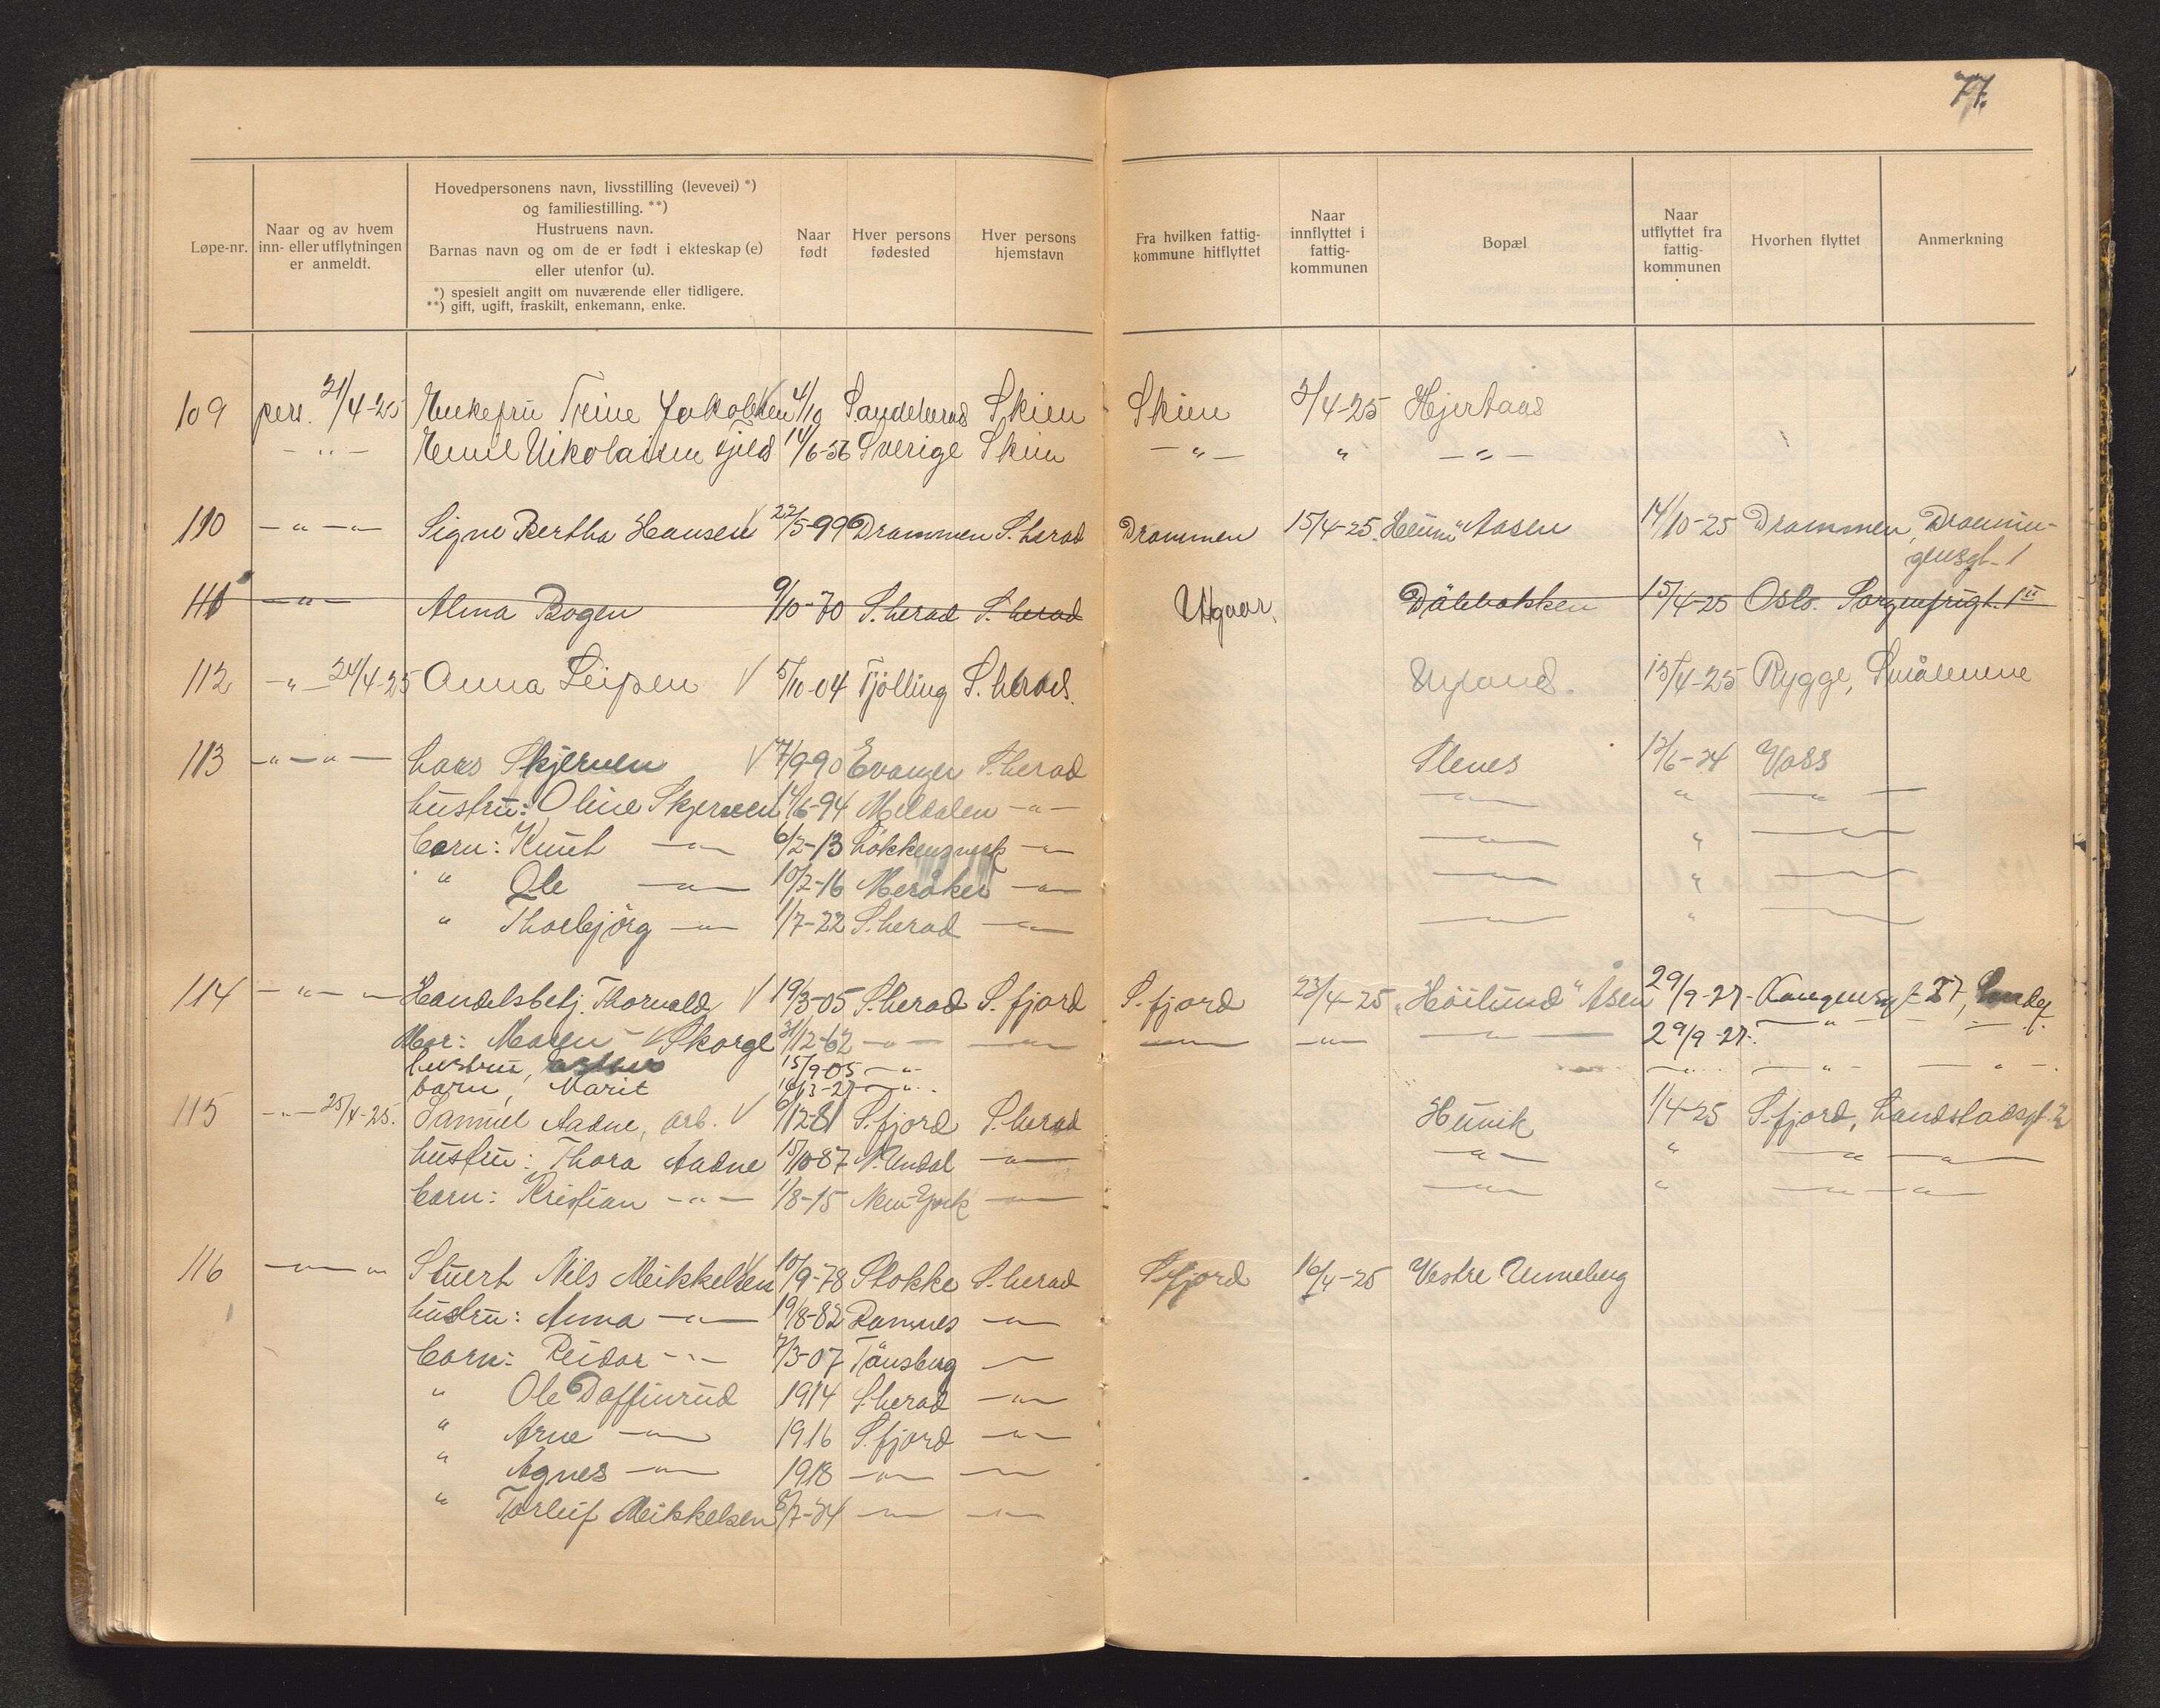 77.
Løpe-nr.
Naar og av hvem
inn- eller utflytningen
er anmeldt.
Hovedpersonens navn, livsstilling (levevei) *)
og familiestilling. **)
Hustruens navn.
Barnas navn og om de er født i ekteskap (e)
eller utenfor (u).
*) spesielt angitt om nuværende eller tidligere.
**) gift, ugift, fraskilt, enkemann, enke.
Naar
født
Hver persons
fødested
Hver persons
hjemstavn
Fra hvilken fattig-
kommune hitflyttet
Naar
innflyttet i
fattig-
kommunen
Bopæl
Naar
utflyttet fra
fattig-
kommunen
Hvorhen flyttet
Anmerkning
109 pers. 21/4-25 Enkefru Trine Jakobsen 4/10 Sandeherad Skien Skien 3/4-25 Hjertaas
- " - Emil Nikolaisen Fjeld 14/6-56 Sverige Skien - " - " - " -
110 - " - " - Signe Bertha Hansen V 22/5-99 Drammen S. herad Drammen 15/4-25 "Heim" Aasen 14/10-25 Drammen, Drammen-
gensgt. 1
111 - " - Alma Bogen 9/10-70 S. herad S. herad Utgaar. Dålebakken 15/4-25 Oslo. Sorgenfrigt. 1 II
112 - " - 24/4-25 Anna Leipen V 5/10-04 Tjölling S. herad. Nyland. 15/4-25 Rygge, Smålenene
113 - " - " - Lars Skjerven V 7/9-90 Evanger S. herad Stenes 12/6-24 Voss
hustru: Oline Skjerven 14/6-94 Meldalen - " - - " - " - " -
barn: Knut - " - 6/2-13 Lökkensverk - " - - " - " - " -
" Ole - " - 10/2-16 Meråker - " - - " - " - " -
" Thorbjörg - " - 1/7-22 S. herad - " - - " - " - " -
114 - " - " - Handelsbetj. Thorvald V 19/3-05 S. herad S. fjord S. fjord 23/4-25 "Höilund" Åsen 29/9-27- Kongensgt 27,
Mor: Maren - V Skorge 31/12-62 - " - - " - - " - - " - - " - 29/9-27. - " - - " -
hustru, 15/9-05 - " - - " - - " - - " -
barn, Marit 16/3-27 - " -
115 - " - 25/4-25. Samuel Aadne, arb. V 6/12-81 S. fjord S. herad Hunik 1/4-25 S. fjord, Landstadsgt. 2
hustru: Thora Aadne 15/10-87 N. Undal - " - - " - " - " - " -
barn: Kristian - " - 1/8-15 New-York - " - - " - " - " - " -
116 - " - " Stuert Nils Mikkelsen 10/9-78 Stokke S. herad S. fjord 16/4-25 Vestre Unneberg
hustru: Anna - " - 19/8-82 Ramnes - " -
barn: Reidar - " - 7/3-07 Tönsberg - " -
" Ole Daffinrud 1914 S. herad - " -
" Arne - " - 1916 S. fjord - " -
" Agnes - " - 1918 - " - - " -
" Torleif Mikkelsen 8/7-24 - " - - " -